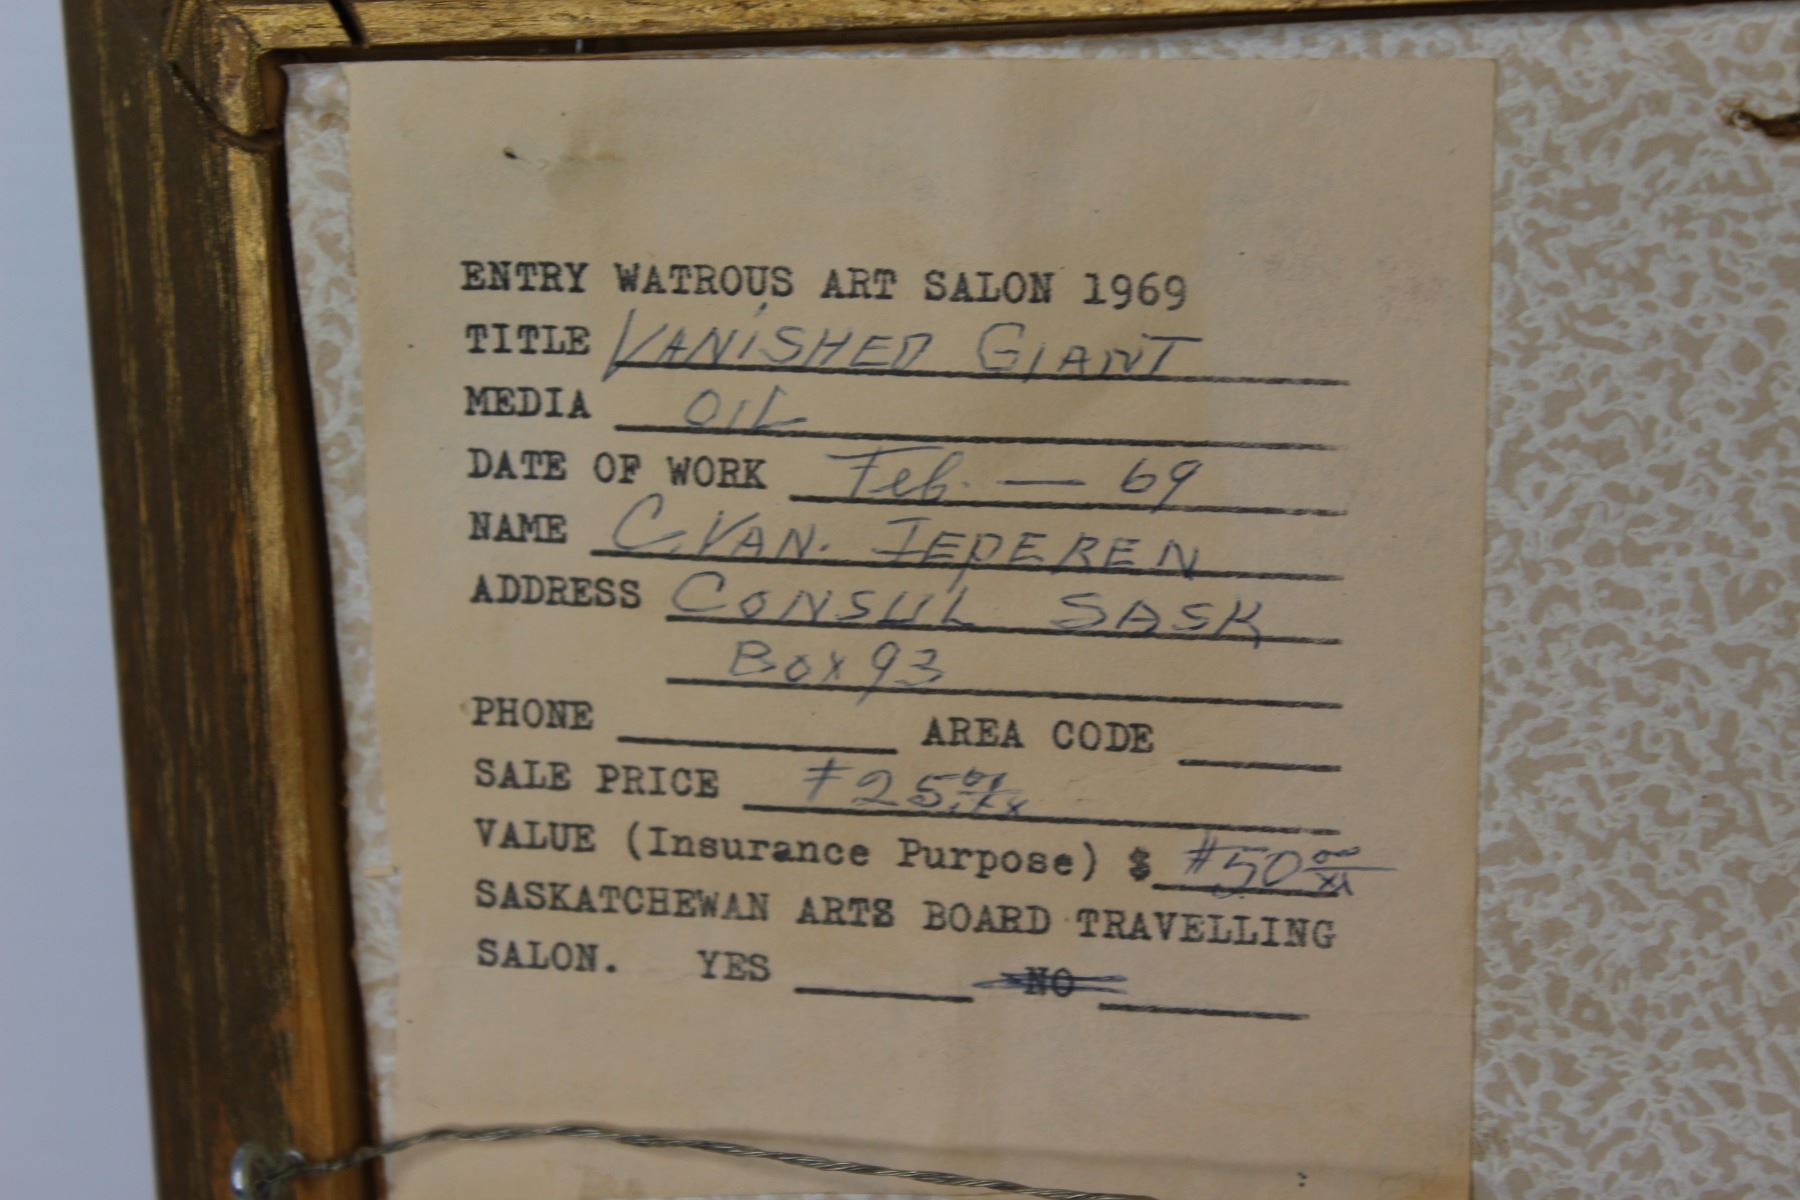 ENTRY WATROUS ART SALON 1969
TITLE VANISHED GIANT
MEDIA OIL
DATE OF WORK Feb. — 69
NAME C. VAN. IEPEREN
ADDRESS CONSUL SASK
Box 93
PHONE ________ AREA CODE ________
SALE PRICE $25.
VALUE (Insurance Purpose) $ $50 00/xx
SASKATCHEWAN ARTS BOARD TRAVELLING
SALON. YES ________ NO ________